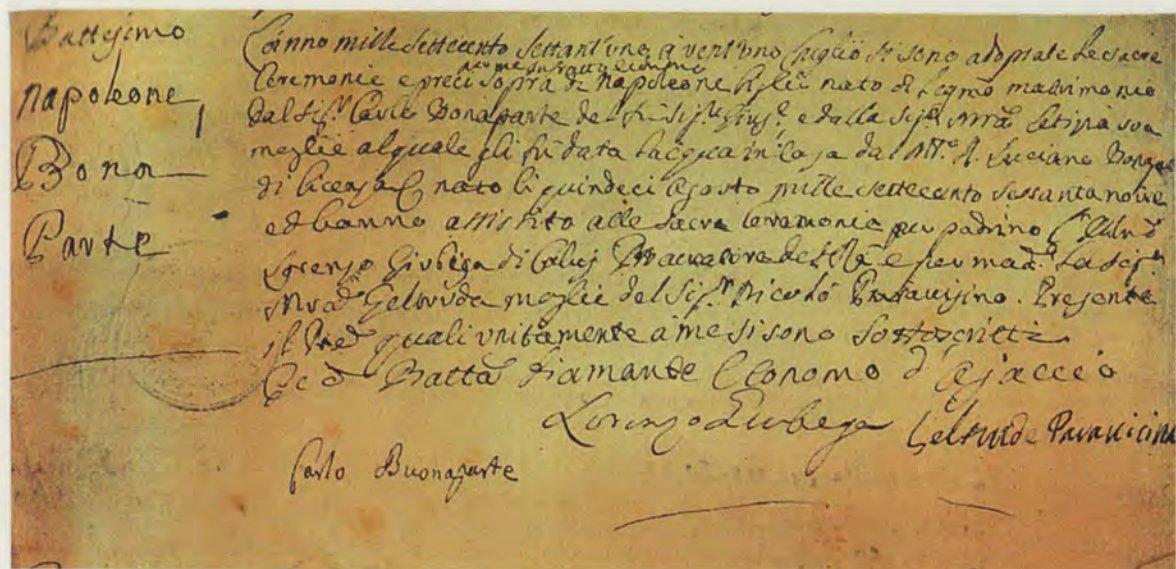 Battesimo
Napoleone
Bona
Parte
L'anno mille settecento settant'uno a vent'uno Luglio si sono adoprate le sacre
per me infrascritto economo
Ceremonie e preci sopra di Napoleone figlio nato di Legmo matrimonio
dal Sig.r Carlo Bonaparte del fu Sig.r Gius.e e dalla Sig.a Mra Letizia sua
moglie al quale gli fu data l'acqua in Casa dal M.o R. Luciano Bonap
di licenza nato li quindeci Agosto mille settecento sessanta nove
ed hanno assistito alle sacre Ceremonie per padrino
Lorenzo Giubega di Calvj Procuratore del Rè e per mad. la sig.a
Mrad Geltruda moglie del Sig.r Nicolò Paravisino. Presente
il Pred quali unitamente a me si sono sottoscritti
Batta Diamante Economo d'Ajaccio
Lorenzo Giubega Geltruda Paravicina
Carlo Buonaparte